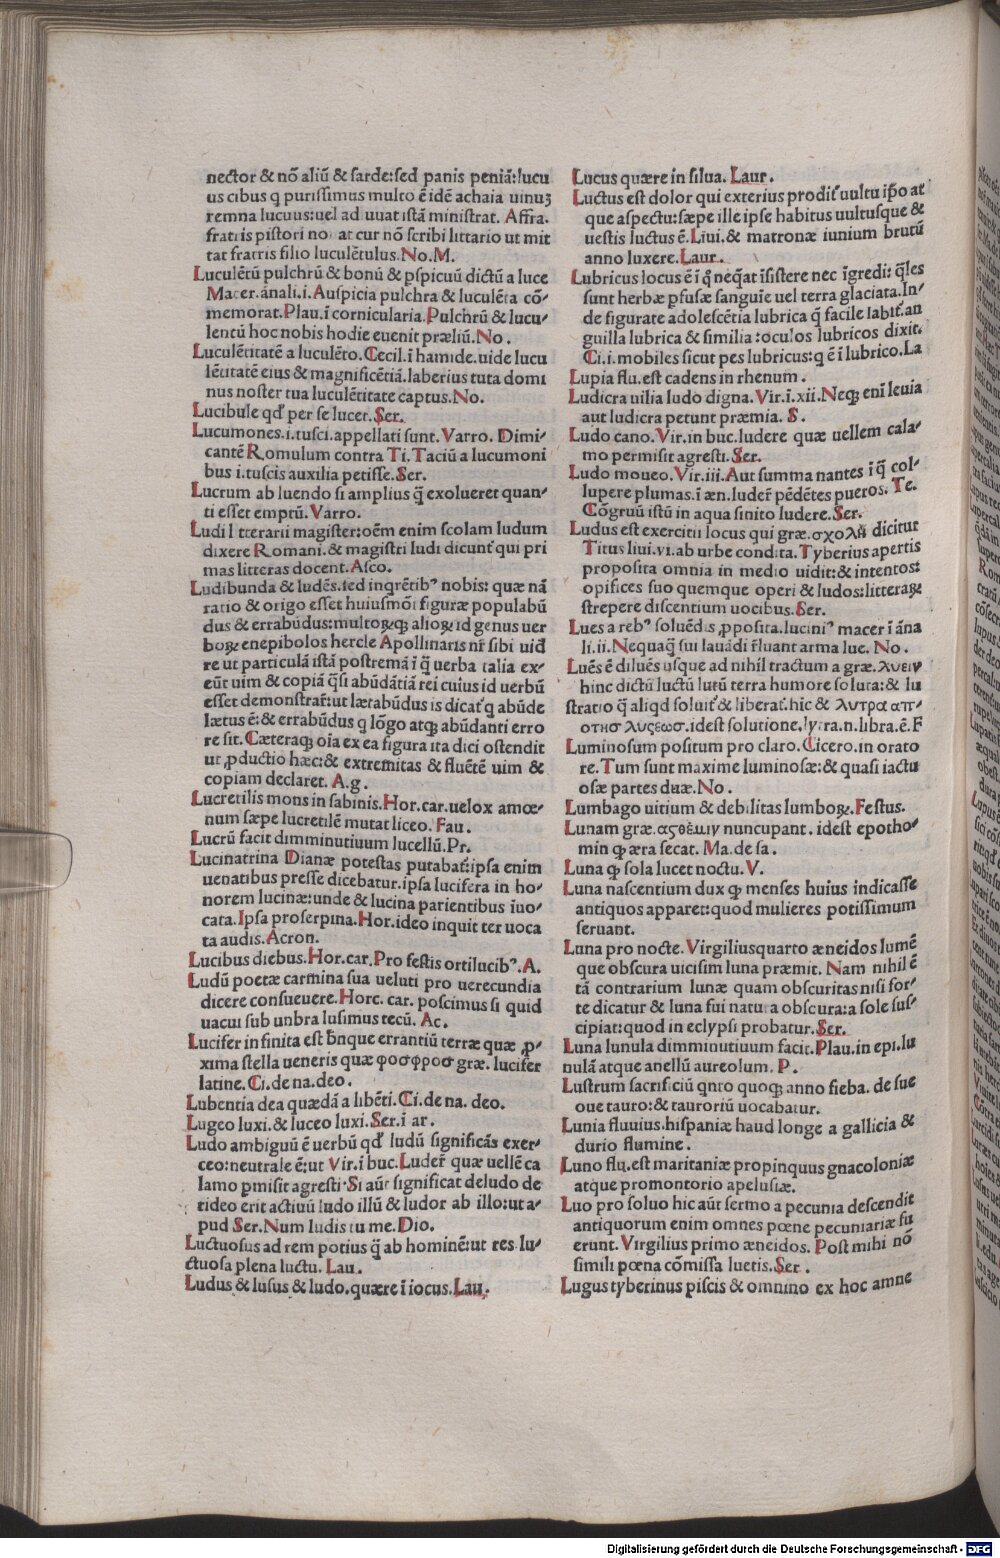 nector & nõ aliũ & sarde: sed panis peniã: lucu
us cibus q purissimus multo ẽ idẽ achaia uinuꝫ
remna lucuus: uel ad uuat istã ministrat. Affra.
fratris pistori no at cur nõ scribi littario ut mit
tat fratris filio luculẽtulus. No. M.
Luculẽtũ pulchrũ & bonũ & pspicuũ dictũ a luce
Macer. ánali. i. Auspicia pulchra & luculẽta cõ-
memorat. Plau. ĩ cornicularia. Pulchrũ & lucu-
lentũ hoc nobis hodie euenit præliũ. No.
Luculẽtitatẽ a luculẽto. Cecil. ĩ hamide. uide lucu
lẽtitatẽ eius & magnificẽtiã. laberius tuta domi
nus noster tua luculẽtitate captus. No.
Lucibule qđ per se lucer. Ser.
Lucumones. i. tusci. appellati sunt. Varro. Dimi-
cantẽ Romulum contra Ti. Taciũ a lucumoni
bus i. tuscis auxilia petisse. Ser.
Lucrum ab luendo si amplius q̃ exolueret quan-
ti esset emptũ. Varro.
Ludi l tterarii magister: oẽm enim scolam ludum
dixere Romani. & magistri ludi dicunt᷑ qui pri
mas litteras docent. Asco.
Ludibunda & ludẽs. sed inqrẽtibꝰ nobis: quæ nã
ratio & origo esset huiusmõi figuræ populabũ
dus & errabũdus: multoꝝqꝫ alioꝝ id genus uer
boꝝ enepibolos hercle Apollinaris nr̃ sibi uid
re ut particulã istã postremã ĩ q̃ uerba talia ex-
eũt uim & copiã q̃si abũdãtiã rei cuius id uerbũ
esset demonstrar̃: ut lætabũdus is dicat᷑ q abũde
lætus ẽ: & errabũdus q lõgo atqꝫ abũdanti erro
re sit. Cæteraqꝫ oĩa ex ea figura ita dici ostendit
ut ꝓductio hæc: & extremitas & fluẽtẽ uim &
copiam declaret. A. g.
Lucretilis mons in sabinis. Hor. car. uelox amœ-
num sæpe lucretilẽ mutat liceo. Fau.
Lucrũ facit dimminutiuum lucellũ. Pr.
Lucinatrina Dianæ potestas putabat᷑: ipsa enim
uenatibus presse dicebatur. ipsa lucifera in ho-
norem lucinæ: unde & lucina parientibus ĩuo-
cata. Ipsa proserpina. Hor. ideo inquit ter uoca
ta audis. Acron.
Lucibus diebus. Hor. car. Pro festis ortilucibꝰ. A.
Ludũ poetæ carmina sua ueluti pro uerecundia
dicere consueuere. Horc. car. poscimus si quid
uacui sub unbra lusimus tecũ. Ac.
Lucifer infinita est b̃nque errantiũ terræ quæ ꝓ-
xima stella ueneris quæ φοσφροσ græ. lucifer
latine. Ci. de na. deo.
Lubentia dea quædã a libẽti. Ci. de na. deo.
Lugeo luxi. & luceo luxi. Ser. ĩ ar.
Ludo ambiguũ ẽ uerbũ qđ ludũ significãs exer-
ceo: neutrale ẽ: ut Vir. ĩ buc. Luder̃ quæ uellẽ ca
lamo pmisit agresti. Si aũr significat deludo de
rideo erit actiuũ ludo illũ & ludor ab illo: ut a-
pud Ser. Num ludis tu me. Dio.
Luctuosus ad rem potius q̃ ab hominẽ: ut res lu-
ctuosa plena luctu. Lau.
Ludus & lusus & ludo. quære ĩ iocus. Lau.
Lucus quære in silua. Laur.
Luctus est dolor qui exterius prodit᷑ uultu ip̃o at
que aspectu: sæpe ille ipse habitus uultusque &
uestis luctus ẽ. Liui. & matronæ iunium brutũ
anno luxere. Laur.
Lubricus locus ẽ ĩ q̊ neq̃at ĩsistere nec ĩgredi: q̃les
sunt herbæ pfusæ sanguĩe uel terra glaciata. In-
de figurate adolescẽtia lubrica q̃ facile labit᷑. an
guilla lubrica & similia: oculos lubricos dixit.
Ci. i. mobiles sicut pes lubricus: q ẽ ĩ lubrico. La
Lupia flu. est cadens in rhenum.
Ludicra uilia ludo digna. Vir. ĩ. xii. Neqꝫ enĩ leuia
aut ludicra petunt præmia. S.
Ludo cano. Vir. in buc. ludere quæ uellem cala-
mo permisit agresti. Ser.
Ludo moueo. Vir. iii. Aut summa nantes ĩ q̃ col-
lupere plumas. ĩ æn. luder̃ pẽdẽtes pueros. Te.
Cõgruũ istũ in aqua sinito ludere. Ser.
Ludus est exercitii locus qui græ. σχολὴ dicitur
Titus liui. vi. ab urbe condita. Tyberius apertis
proposita omnia in medio uidit: & intentos:
opifices suo quemque operi & ludos: litteraꝝ
strepere discentium uocibus. Ser.
Lues a rebꝰ soluẽdis ꝓpposita. luciniꝰ macer ĩ ána
li. ii. Nequaq̃ sui lauádi r̃luant arma luc. No.
Luẽs ẽ diluẽs usque ad nihil tractum a græ. λυειν
hinc dictũ luctũ lutũ terra humore soluta: & lu
stratio q̃ aliqd soluit᷑ & liberat᷑. hic & λυτρα απ-
οτησ λυςεωσ. idest solutione. lytra. n. libra. ẽ. F
Luminosum positum pro claro. Cicero. in orato
re. Tum sunt maxime luminosæ: & quasi iactu
osæ partes duæ. No.
Lumbago uitium & debilitas lumboꝝ. Festus.
Lunam græ. nuncupant. idest epotho-
min qꝫ æra secat. Ma. de sa.
Luna qꝫ sola lucet noctu. V.
Luna nascentium dux qꝫ menses huius indicasse
antiquos apparet: quod mulieres potissimum
seruant.
Luna pro nocte. Virgiliusquarto æneidos lumẽ
que obscura uicisim luna præmit. Nam nihil ẽ
tã contrarium lunæ quam obscuritas nisi for-
te dicatur & luna sui natura obscura: a sole sus-
cipiat: quod in eclypsi probatur. Ser.
Luna lunula dimminutiuum facit. Plau. in epi. lu
nulã atque anellũ aureolum. P.
Lustrum sacrificiũ qnto quoqꝫ anno fieba. de sue
oue tauro: & tauroriũ uocabatur.
Lunia fluuius. hispaniæ haud longe a gallicia &
durio flumine.
Luno flu. est maritaniæ propinquus gnacoloniæ
atque promontorio apelusiæ.
Luo pro soluo hic aũt sermo a pecunia descendit
antiquorum enim omnes pœne pecuniariæ fu
erunt. Virgilius primo æneidos. Post mihi nõ
simili pœna cõmissa luetis. Ser.
Lugus tyberinus piscis & omnino ex hoc amne
Digitalisierung gefördert durch die Deutsche Forschungsgemeinschaft - DFG